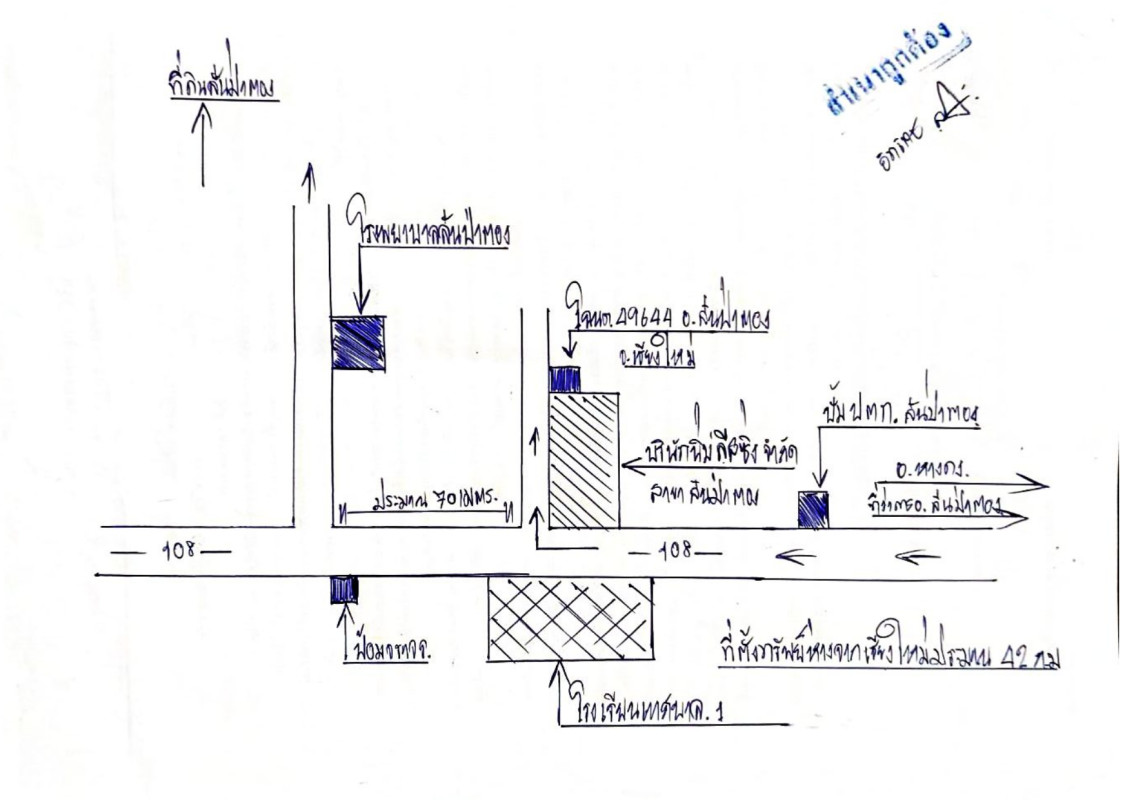 สำเนาถูกต้อง
ที่ดินสันป่าตอง
โรงพยาบาลสันป่าตอง
โฉนด.49644 อ.สันป่าตอง
จ.เชียงใหม่
ปั๊ม ปตท. สันป่าตอง
บริษัทนิ่มลีสซิ่ง จำกัด
สาขา สันป่าตอง
อ.หางดง.
ที่ว่าการอ.สันป่าตอง
ประมาณ 70 เมตร.
108
108
ป้อมจราจร.
ที่ตั้งทรัพย์ห่างจากเชียงใหม่ประมาณ 42 กม
โรงเรียนเทศบาล.1